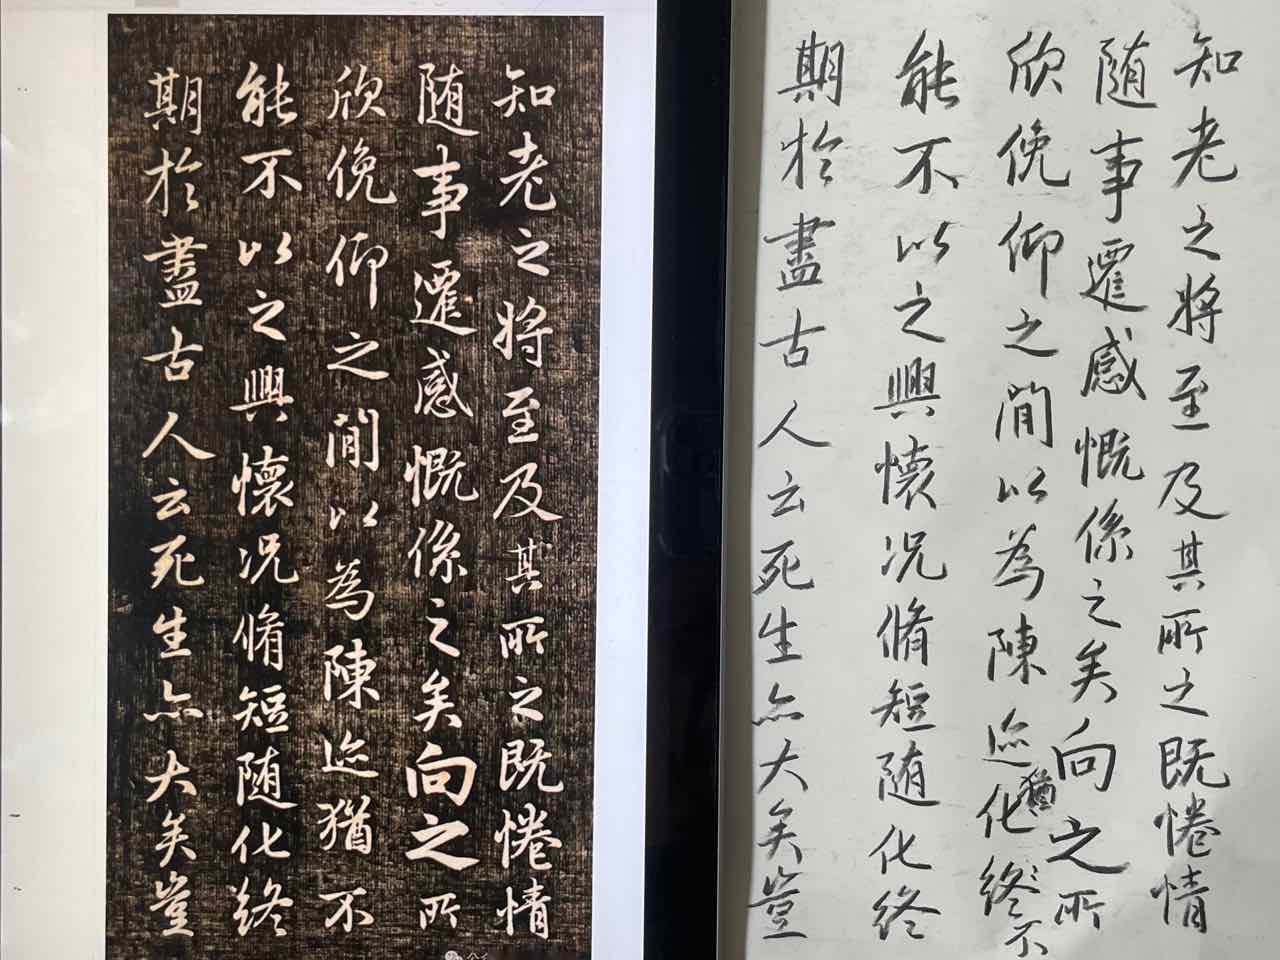 知老之将至及其所之既惓情
随事遷感慨係之矣向之所
欣俛仰之間以為陳迹猶不
能不以之興懷况脩短随化終
期於盡古人云死生亦大矣豈
知老之将至及其所之既惓情
随事遷感慨係之矣向之所
欣俛仰之間以為陳迹化猶終不
能不以之興懷况脩短随化終
期於盡古人云死生亦大矣豈